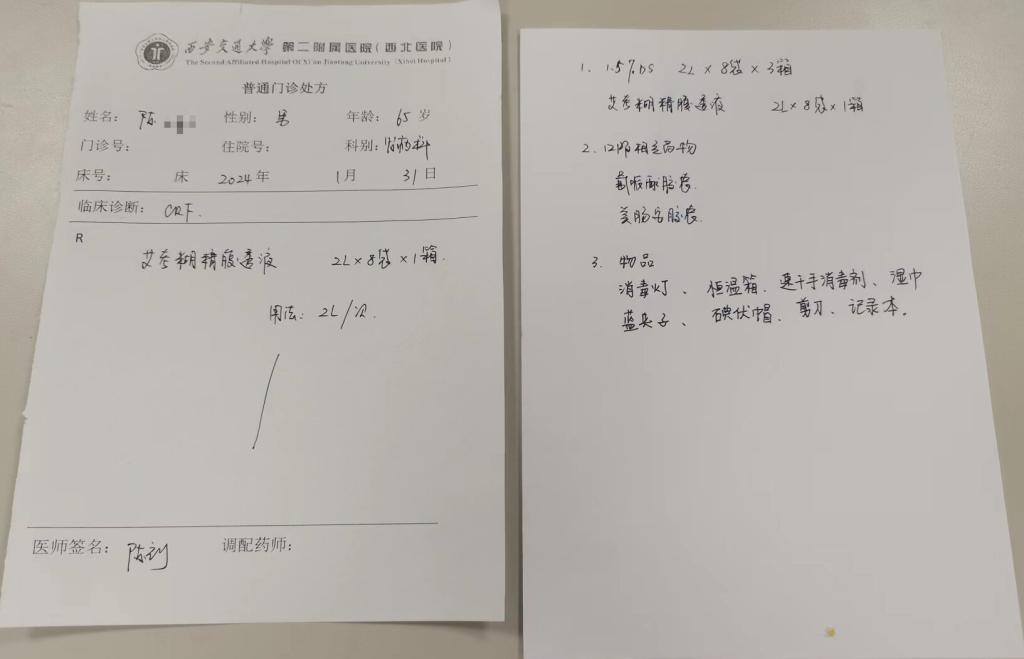 西安交通大学 第二附属医院(西北医院)
The Second Affiliated Hospital Of Xi'an Jiaotong University (Xibei Hospital)
普通门诊处方
姓名: 陈 性别: 男 年龄: 65 岁
门诊号: 住院号: 科别: 肾病科
床号: 床 2024年 1月 31日
临床诊断: CRF.
R
艾考糊精腹透液 2L×8袋×1箱.
用法: 2L/次.
医师签名: 陈 调配药师:
1. 1.5%DS 2L×8袋×3箱
艾考糊精腹透液 2L×8袋×1箱
2. 口服相关药物
胶囊.
胶囊.
3. 物品
消毒灯、恒温箱、速干手消毒剂、湿巾
蓝夹子、碘伏帽、剪刀、记录本。